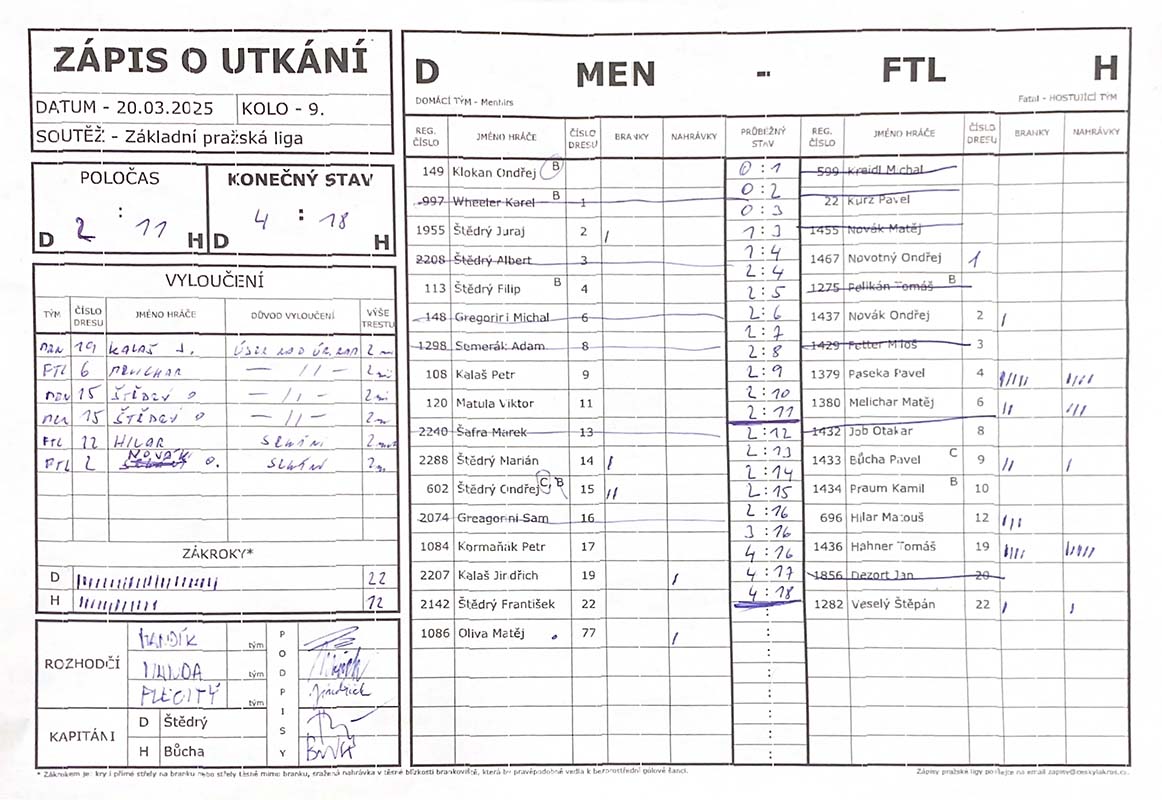 ZÁPIS O UTKÁNÍ
DATUM - 20.03.2025 KOLO - 9.
SOUTĚŽ - Základní pražská liga
POLOČAS KONEČNÝ STAV
D 2 : 11 H D 4 : 18 H
VYLOUČENÍ
TÝM ČÍSLO DRESU JMÉNO HRÁČE DŮVOD VYLOUČENÍ VÝŠE TRESTU
19 KALAŠ J. 2
FTL 6 2
15 ŠTĚDRÝ O 2
15 ŠTĚDRÝ O 2
FTL 22 HILAR 2
FTL 2 NOVÁK O. 2
ZÁKROKY*
D 22
H 12
ROZHODČÍ
HANDÍK tým
tým
tým
PODPISY
KAPITÁNI
D Štědrý
H Bůcha
D MEN - FTL H
DOMÁCÍ TÝM - Menhirs Fatal - HOSTUJÍCÍ TÝM
REG. ČÍSLO JMÉNO HRÁČE ČÍSLO DRESU BRANKY NAHRÁVKY PRŮBĚŽNÝ STAV REG. ČÍSLO JMÉNO HRÁČE ČÍSLO DRESU BRANKY NAHRÁVKY
149 Klokan Ondřej B
997 Wheeler Karel B 1
1955 Štědrý Juraj 2
2208 Štědrý Albert 3
113 Štědrý Filip B 4
148 Gregorini Michal 6
1298 Semerák Adam 8
108 Kalaš Petr 9
120 Matula Viktor 11
2240 Šafra Marek 13
2288 Štědrý Marián 14
602 Štědrý Ondřej C, B 15
2074 Greagorini Sam 16
1084 Kormaňák Petr 17
2207 Kalaš Jindřich 19
2142 Štědrý František 22
1086 Oliva Matěj 77
0 : 1
0 : 2
0 : 3
1 : 3
1 : 4
2 : 4
2 : 5
2 : 6
2 : 7
2 : 8
2 : 9
2 : 10
2 : 11
2 : 12
2 : 13
2 : 14
2 : 15
2 : 16
3 : 16
4 : 16
4 : 17
4 : 18
599 Kreidl Michal
22 Kurz Pavel
1455 Novák Matěj
1467 Novotný Ondřej 1
1275 Pelikán Tomáš B
1437 Novák Ondřej 2
1429 Fetter Miloš 3
1379 Paseka Pavel 4
1380 Melichar Matěj 6
1432 Job Otakar 8
1433 Bůcha Pavel C 9
1434 Praum Kamil B 10
696 Hilar Matouš 12
1436 Hahner Tomáš 19
1856 Dezort Jan 20
1282 Veselý Štěpán 22
* Zákrokem je: krytí přímé střely na branku nebo střely těsně mimo branku, sražená nahrávka v těsné blízkosti brankoviště, která by pravděpodobně vedla k bezprostřední gólové šanci.
Zápisy pražské ligy posílejte na email zapisy@ceskylakros.cz.